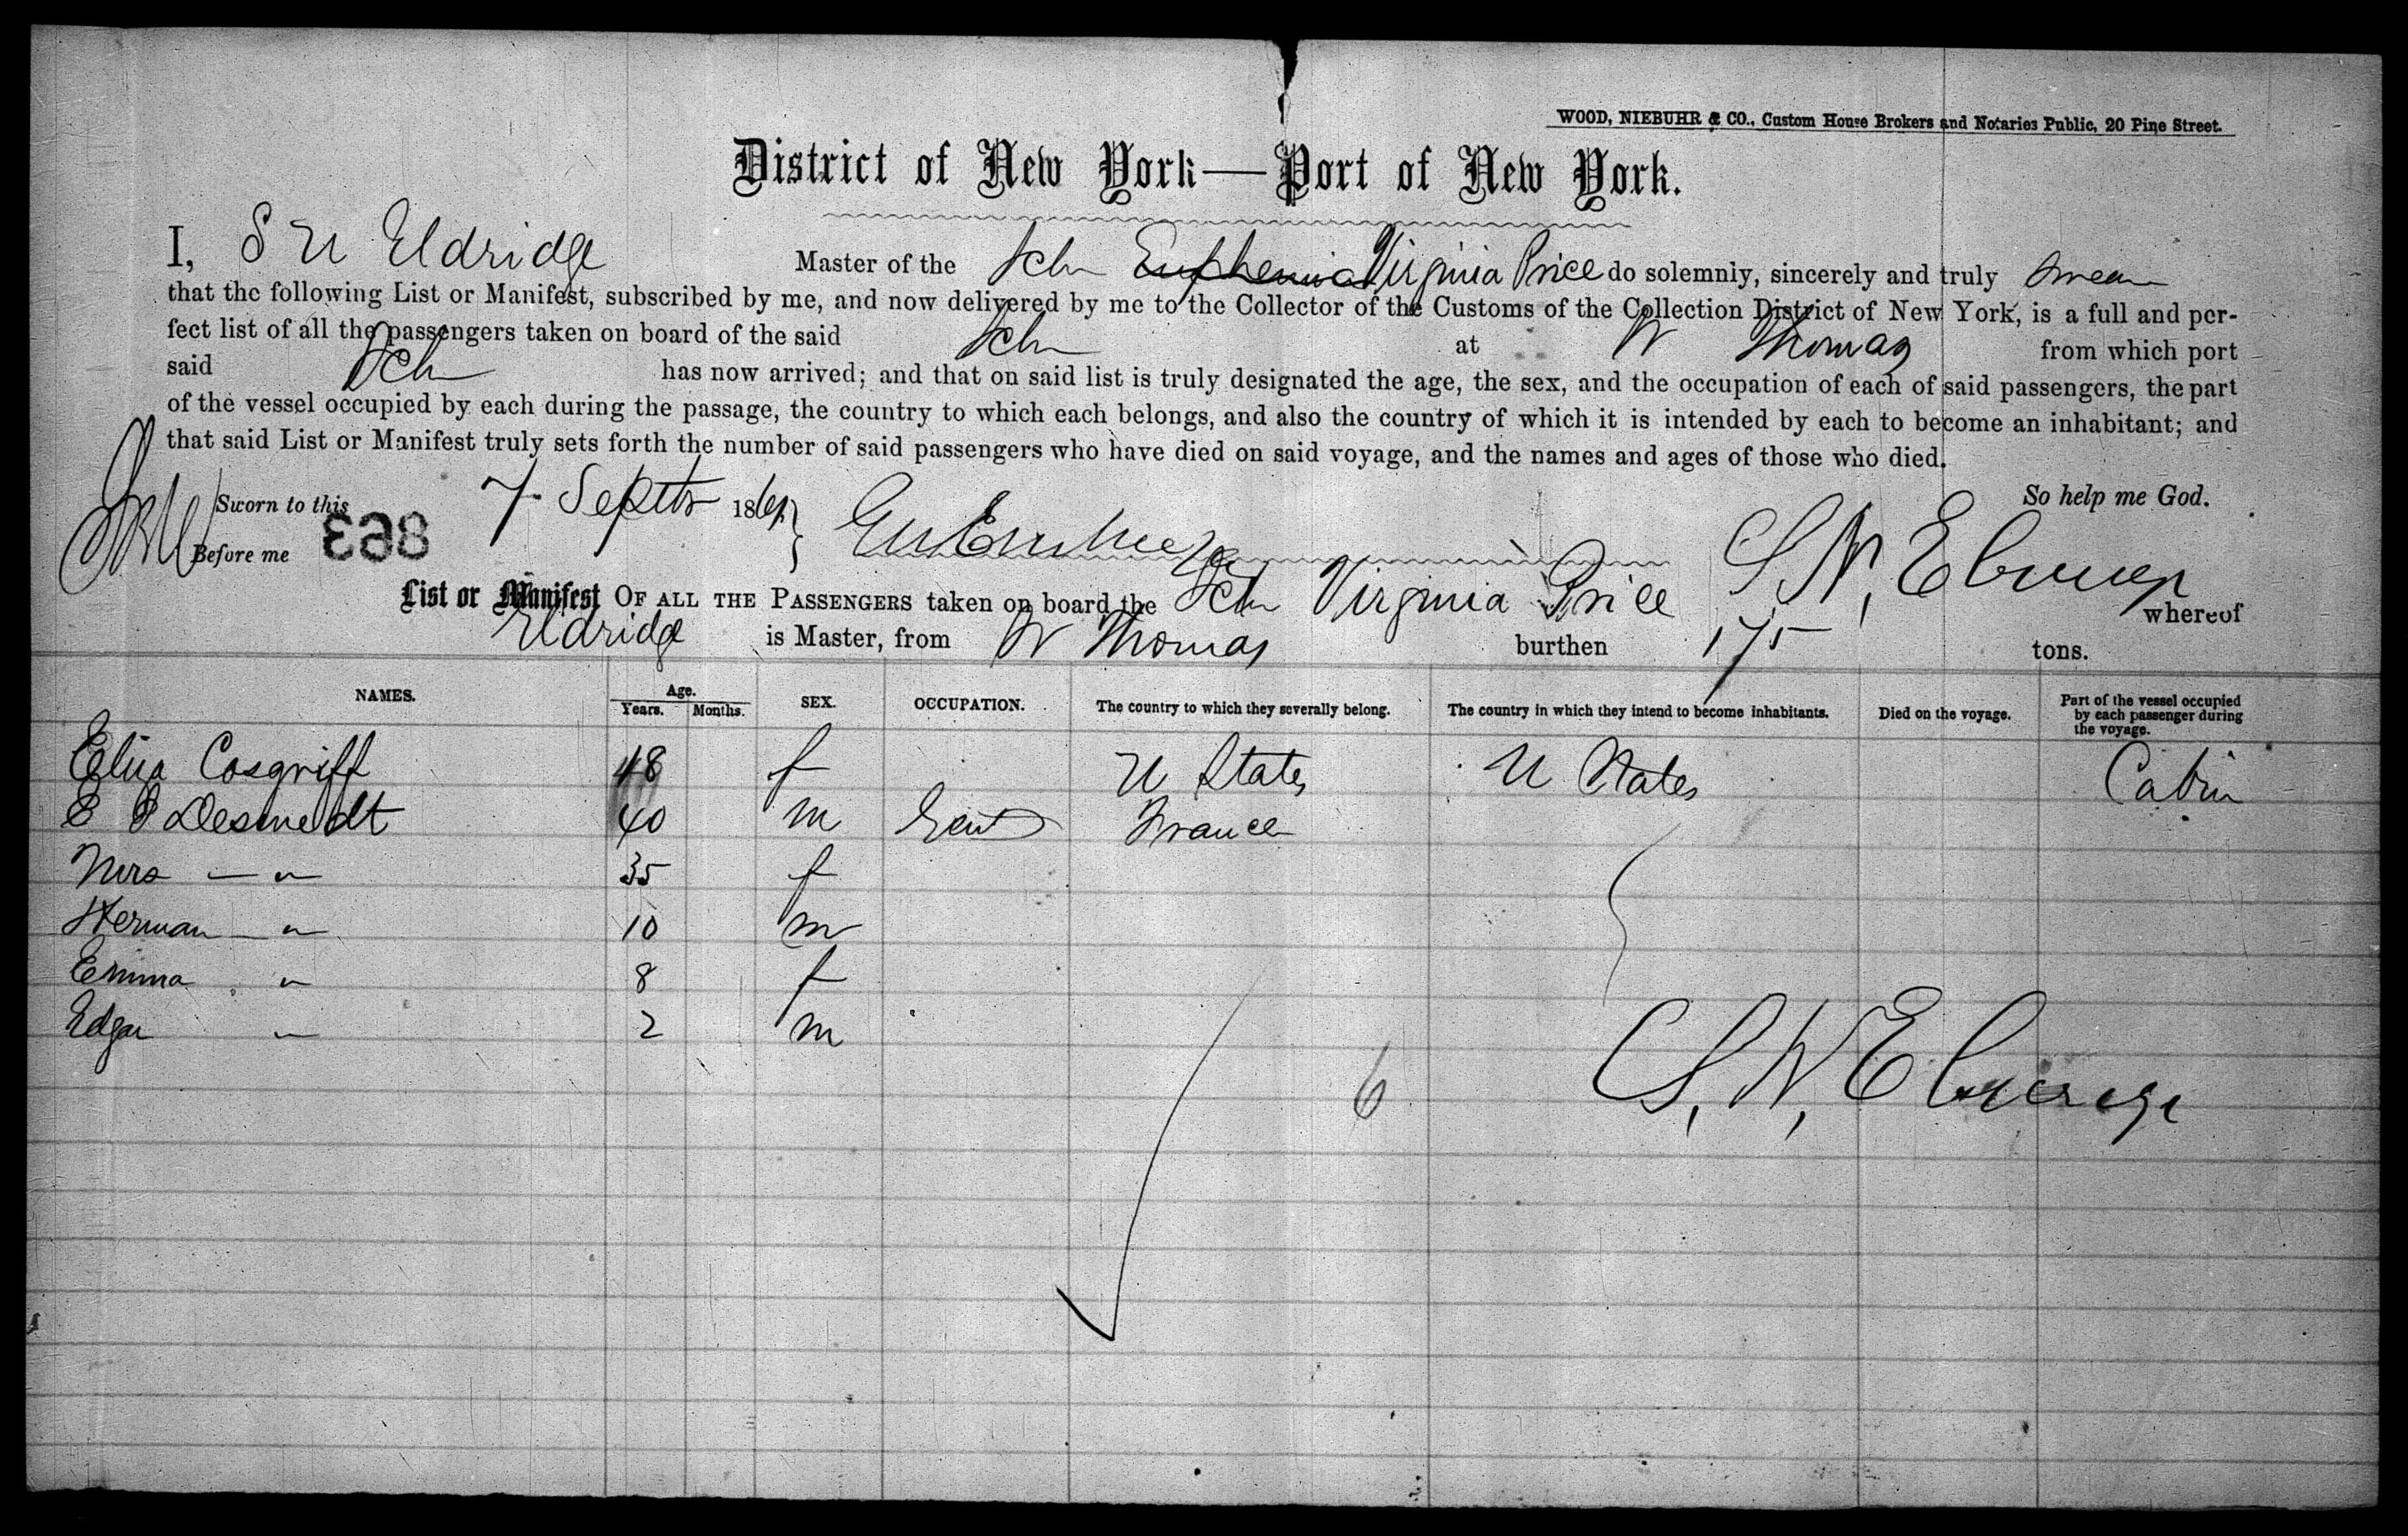 WOOD, NIEBUHR & CO., Custom House Brokers and Notaries Public, 20 Pine Street.
District of New York—Port of New York.
I, S N Eldridge Master of the Sch Euphemia Virginia Price do solemnly, sincerely and truly swear
that the following List or Manifest, subscribed by me, and now delivered by me to the Collector of the Customs of the Collection District of New York, is a full and per-
fect list of all the passengers taken on board of the said Sch at St Thomas from which port
said Sch has now arrived; and that on said list is truly designated the age, the sex, and the occupation of each of said passengers, the part
of the vessel occupied by each during the passage, the country to which each belongs, and also the country of which it is intended by each to become an inhabitant; and
that said List or Manifest truly sets forth the number of said passengers who have died on said voyage, and the names and ages of those who died.
So help me God.
Sworn to this 7 Septr 186
Before me 863
List or Manifest OF ALL THE PASSENGERS taken on board the Sch Virginia Price whereof
Eldridge is Master, from St Thomas burthen 175 tons.
NAMES. Age. Years. Months. SEX. OCCUPATION. The country to which they severally belong. The country in which they intend to become inhabitants. Died on the voyage. Part of the vessel occupied by each passenger during the voyage.
Eliza Cosgriff 48 f U States U States Cabin
E P Desmedt 40 m Gent France
Mrs — " 35 f
Herman — " 10 m
Emma " 8 f
Edgar " 2 m
6
S. N. Eldredge